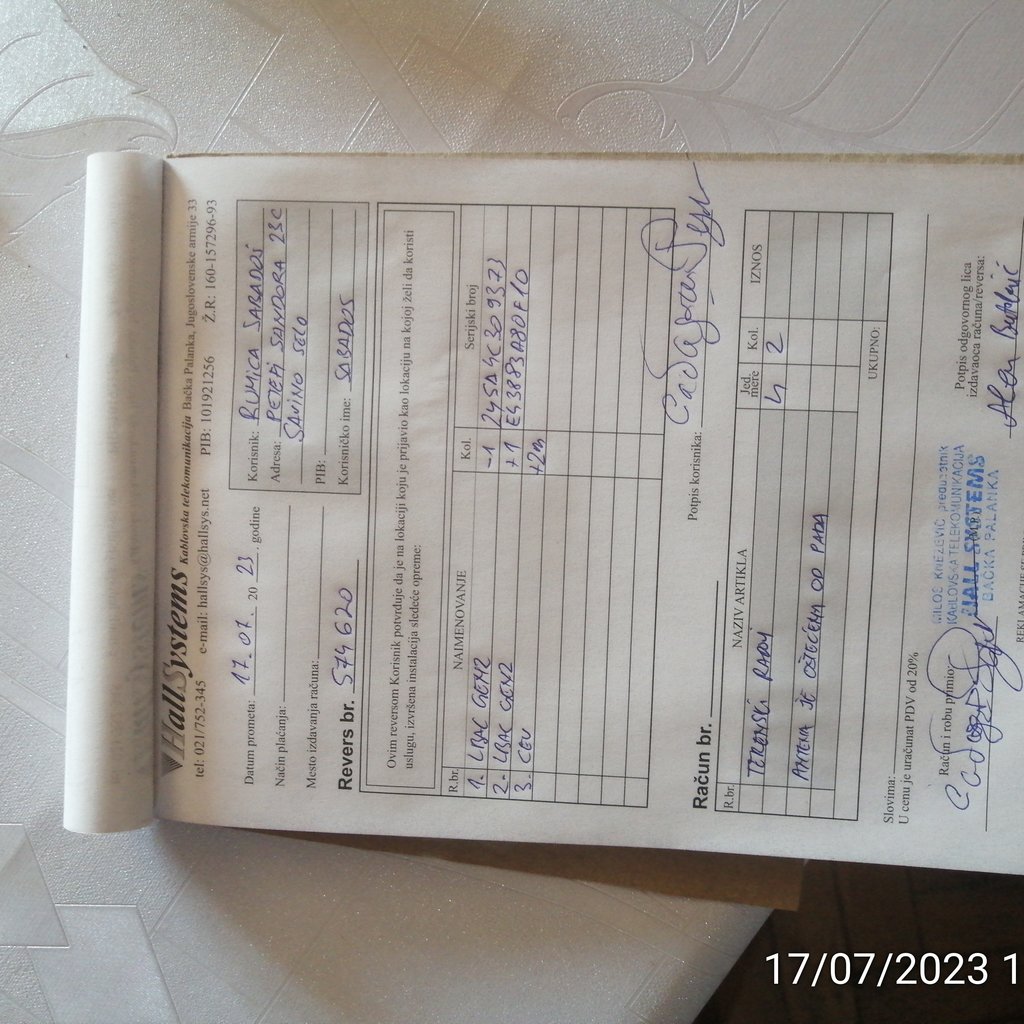 HallSystems Kablovska telekomunikacija Bačka Palanka, Jugoslovenske armije 33
tel: 021/752-345 e-mail: hallsys@hallsys.net PIB: 101921256 Ž.R: 160-157296-93
Datum prometa: 17.07. 20 23. godine
Način plaćanja:
Mesto izdavanja računa:
Revers br. 574620
Korisnik: RUMICA SABADOŠ
Adresa: PETEFI SANDORA 23C
SAVINO SELO
PIB:
Korisničko ime: SABADOS
Ovim reversom Korisnik potvrđuje da je na lokaciji koju je prijavio kao lokaciju na kojoj želi da koristi
uslugu, izvršena instalacija sledeće opreme:
R.br. NAIMENOVANJE Kol. Serijski broj
1. LBAC GEN2 -1 245A4C309373
2. LBAC GEN2 +1 E43883A80F10
3. CEV +2m
Potpis korisnika:
Račun br.
R.br. NAZIV ARTIKLA Jed. mere Kol. IZNOS
TERENSKI RADNI 4 2
ANTENA JE OŠTEĆENA OD PADA
UKUPNO:
Slovima:
U cenu je uračunat PDV od 20%
Račun i robu primio:
MILOŠ KNEŽEVIĆ preduzetnik
KABLOVSKA TELEKOMUNIKACIJA
HALL SYSTEMS
BAČKA PALANKA
Potpis odgovornog lica
izdavaoca računa/reversa:
17/07/2023 1